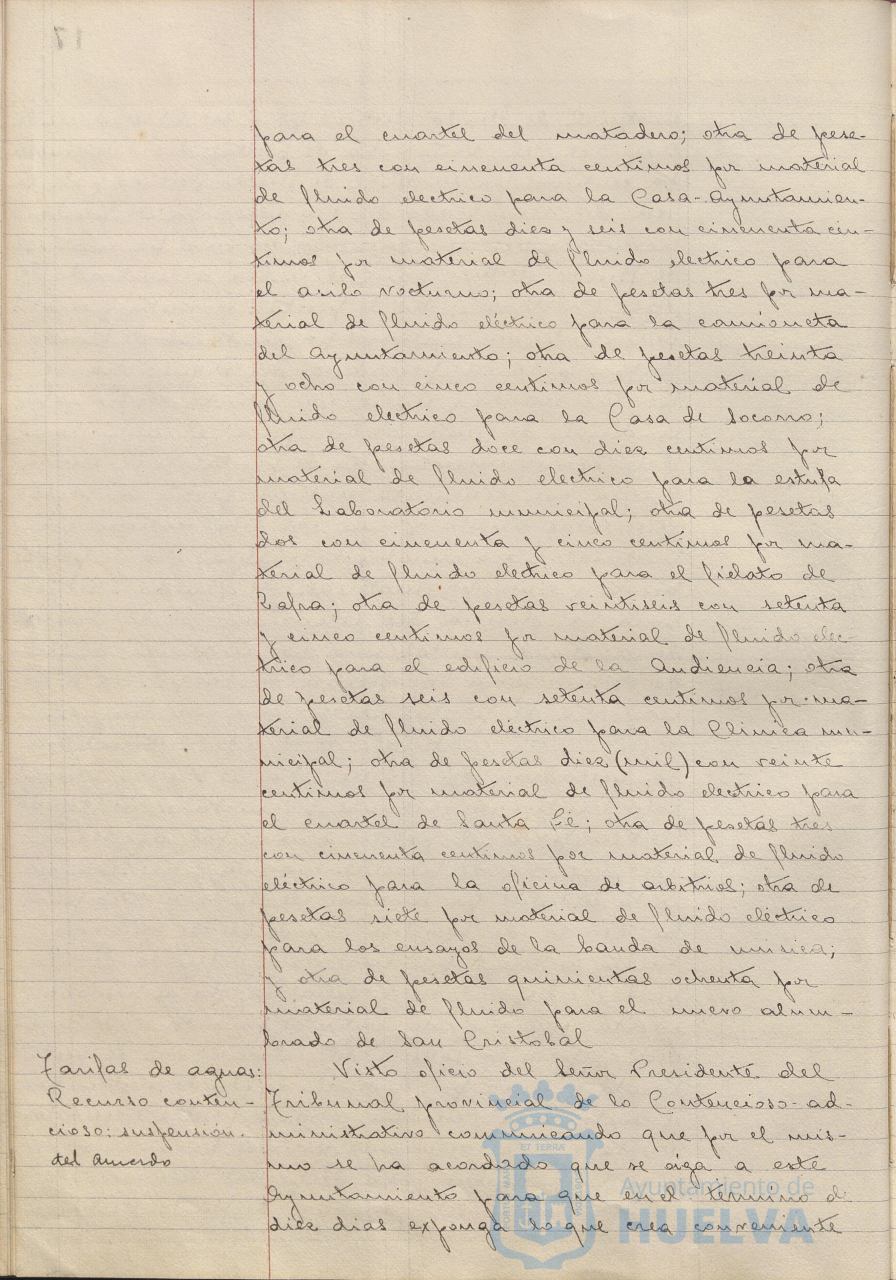 para el cuartel del matadero; otra de pese-
tas tres con cincuenta centimos por material
de fluido electrico para la Casa-Ayuntamien-
to; otra de pesetas diez y seis con cincuenta cen-
timos por material de fluido electrico para
el asilo nocturno; otra de pesetas tres por ma-
terial de fluido eléctrico para la camioneta
del Ayuntamiento; otra de pesetas treinta
y ocho con cinco centimos por material de
fluido electrico para la Casa de Socorro;
otra de pesetas doce con diez centimos por
material de fluido electrico para la estufa
del Laboratorio municipal; otra de pesetas
dos con cincuenta y cinco centimos por ma-
terial de fluido electrico para el fielato de
Zafra; otra de pesetas veintiseis con setenta
y cinco centimos por material de fluido elec-
trico para el edificio de la Audiencia; otra
de pesetas seis con setenta centimos por ma-
terial de fluido eléctrico para la Clinica mu-
nicipal; otra de pesetas diez (mil) con veinte
centimos por material de fluido electrico para
el cuartel de Santa Fé; otra de pesetas tres
con cincuenta centimos por material de fluido
eléctrico para la oficina de arbitrios; otra de
pesetas siete por material de fluido eléctrico
para los ensayos de la banda de musica;
y otra de pesetas quinientas ochenta por
material de fluido para el nuevo alum-
brado de San Cristobal
Tarifas de aguas:
Recurso conten-
cioso: suspensión
del acuerdo
Visto oficio del Señor Presidente del
Tribunal provincial de lo Contencioso-ad-
ministrativo comunicando que por el mis-
mo se ha acordado que se oiga a este
Ayuntamiento para que en el término de
diez dias exponga lo que crea conveniente
Ayuntamiento de
HUELVA